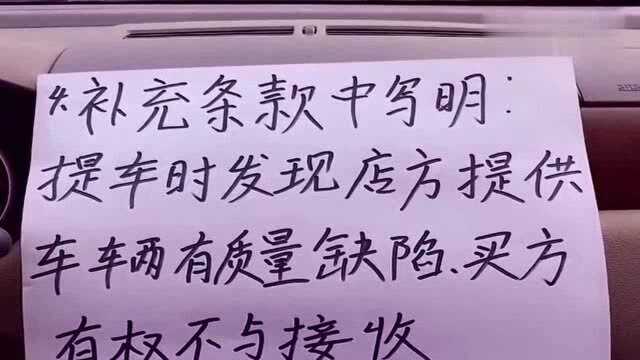 4.补充条款中写明:
提车时发现店方提供
车车辆有质量缺陷、买方
有权不与接收